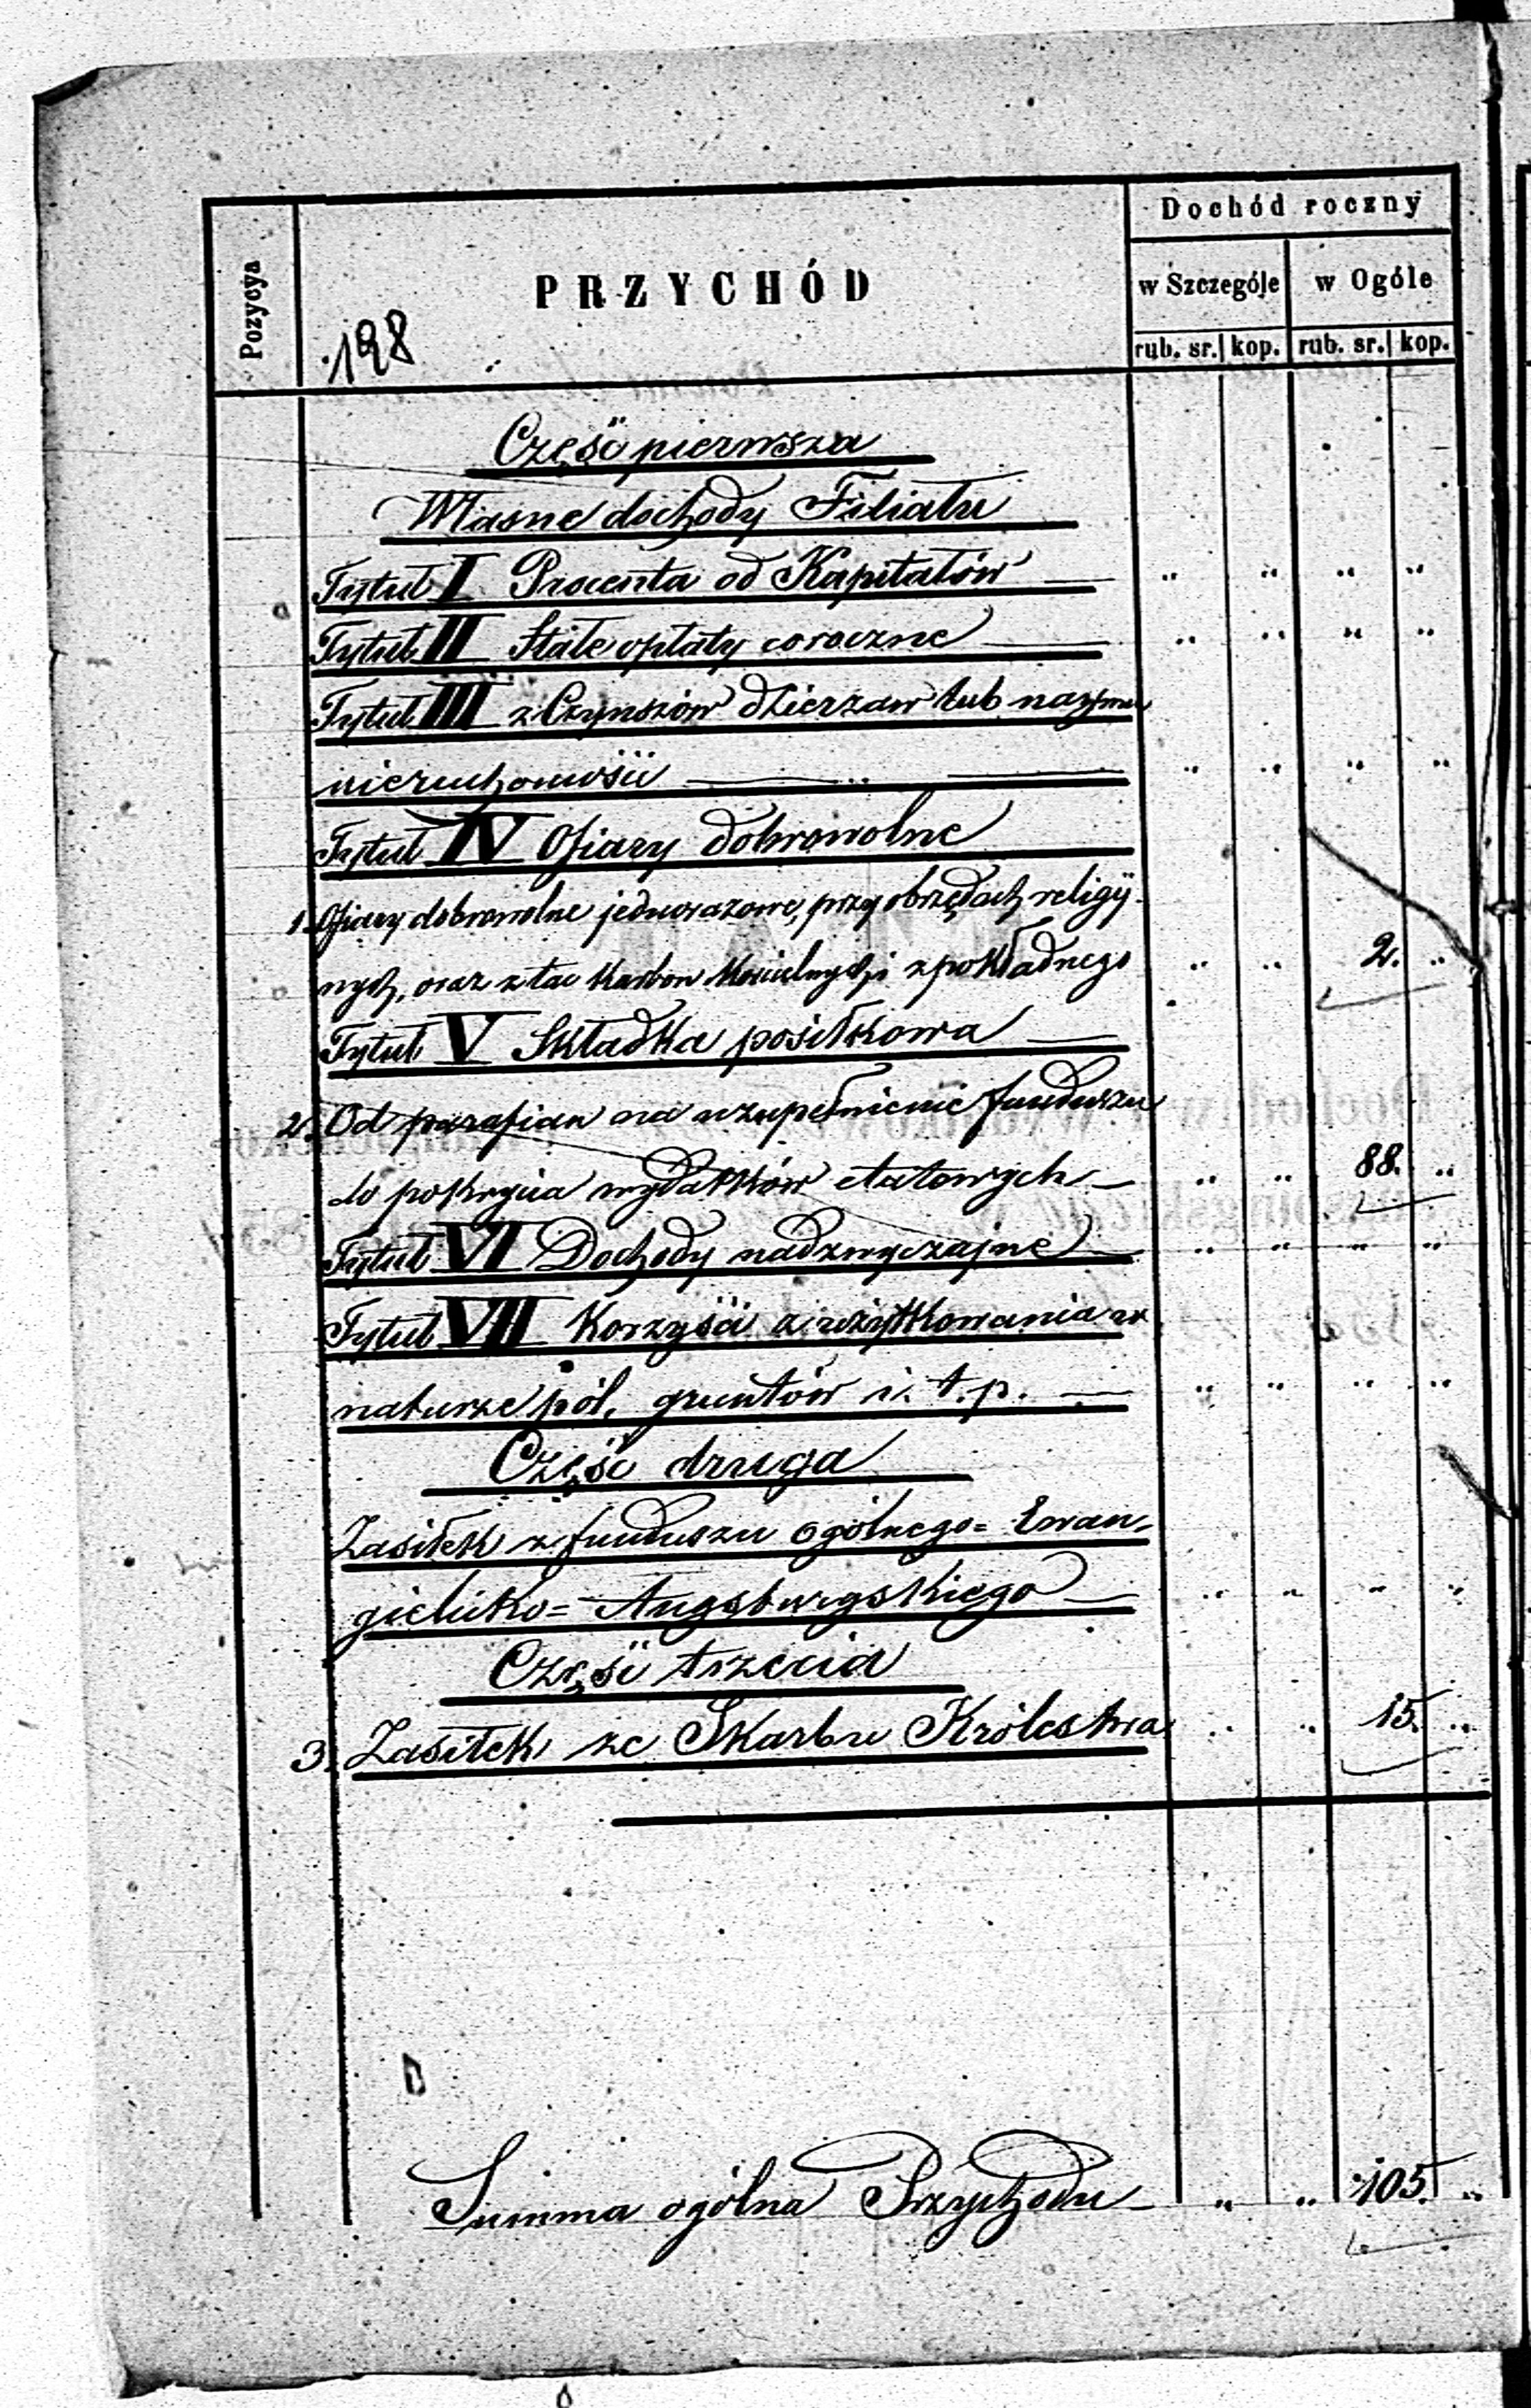 Dochód roczny
Pozycya
PRZYCHÓD
w Szczególe w Ogóle
rub. sr. kop. rub. sr. kop.
198
Część pierwsza
Własne dochody Filiału
Tytuł I Procenta od Kapitałów — " " " "
Tytuł II Stałe opłaty coroczne — " " " "
Tytuł III z Czynszów dzierzaw lub najmu
nieruchomości — " " " "
Tytuł IV Ofiary dobrowolne
1. Ofiary dobrowolne jednorazowe, przy obrzędach religij-
nych, oraz z tac Karbon Kościelnych i z pokładnego " " 2. "
Tytuł V Składka posiłkowa —
2. Od parafian na uzupełnienie funduszu
do pokrycia wydatków etatowych — " " 88. "
Tytuł VI Dochody nadzwyczajne — " " " "
Tytuł VII Korzyści z użytkowania w
naturze pól, gruntów i. t. p. — " " " "
Część druga
Zasiłek z funduszu ogólnego= Ewan-
gielicko= Augsburgskiego — " " " "
Część trzecia
3. Zasiłek ze Skarbu Królestwa " " 15. "
Summa ogólna Przychodu — " " 105. "